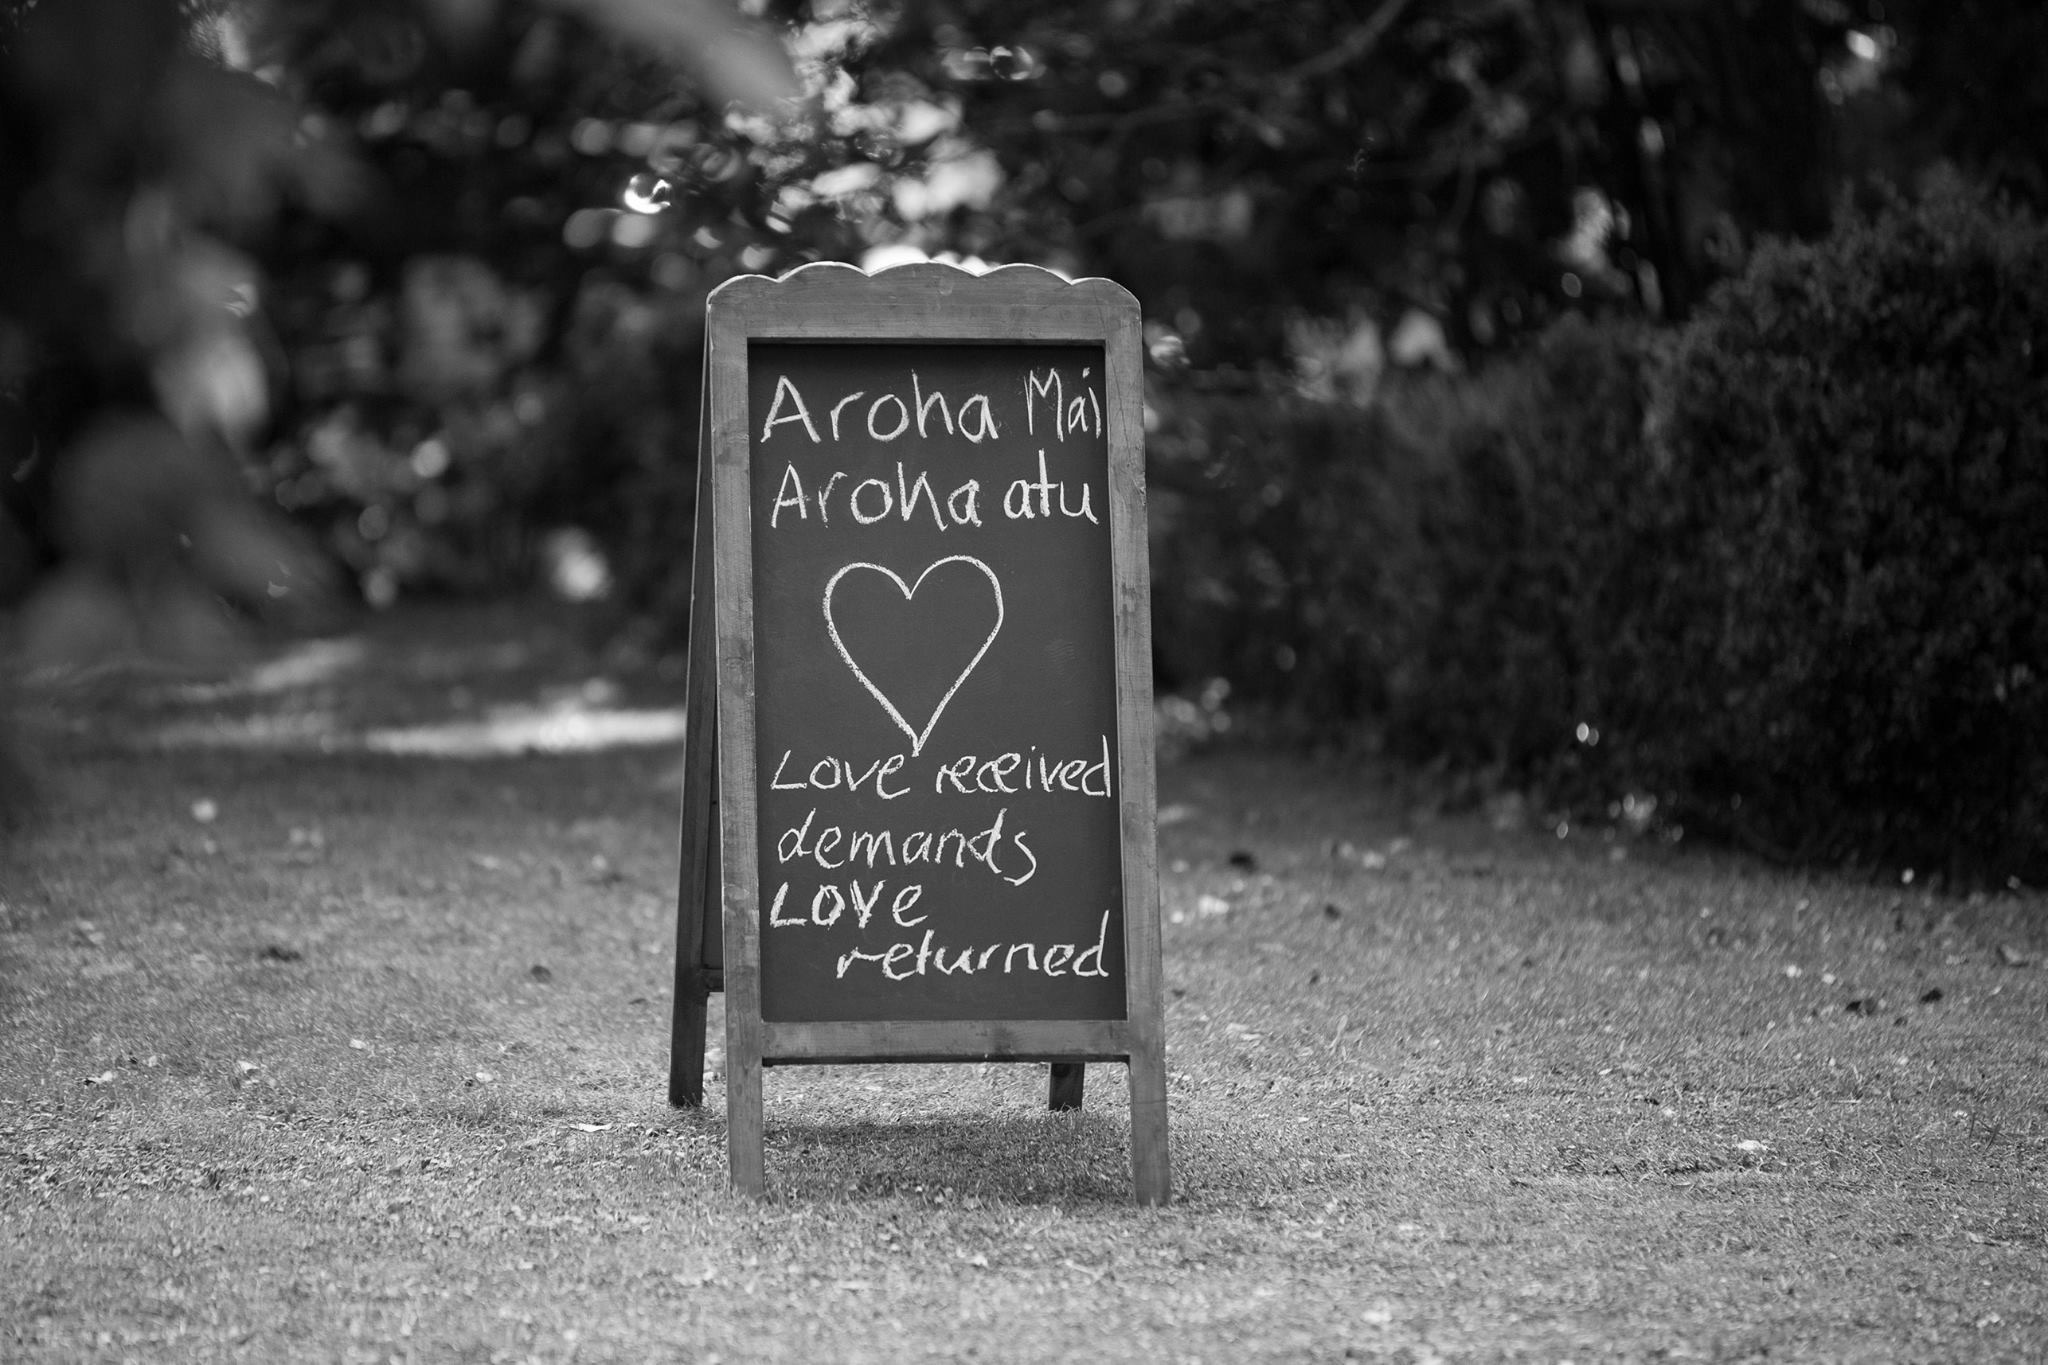 Aroha Mai
Aroha atu
Love received
demands
Love
returned